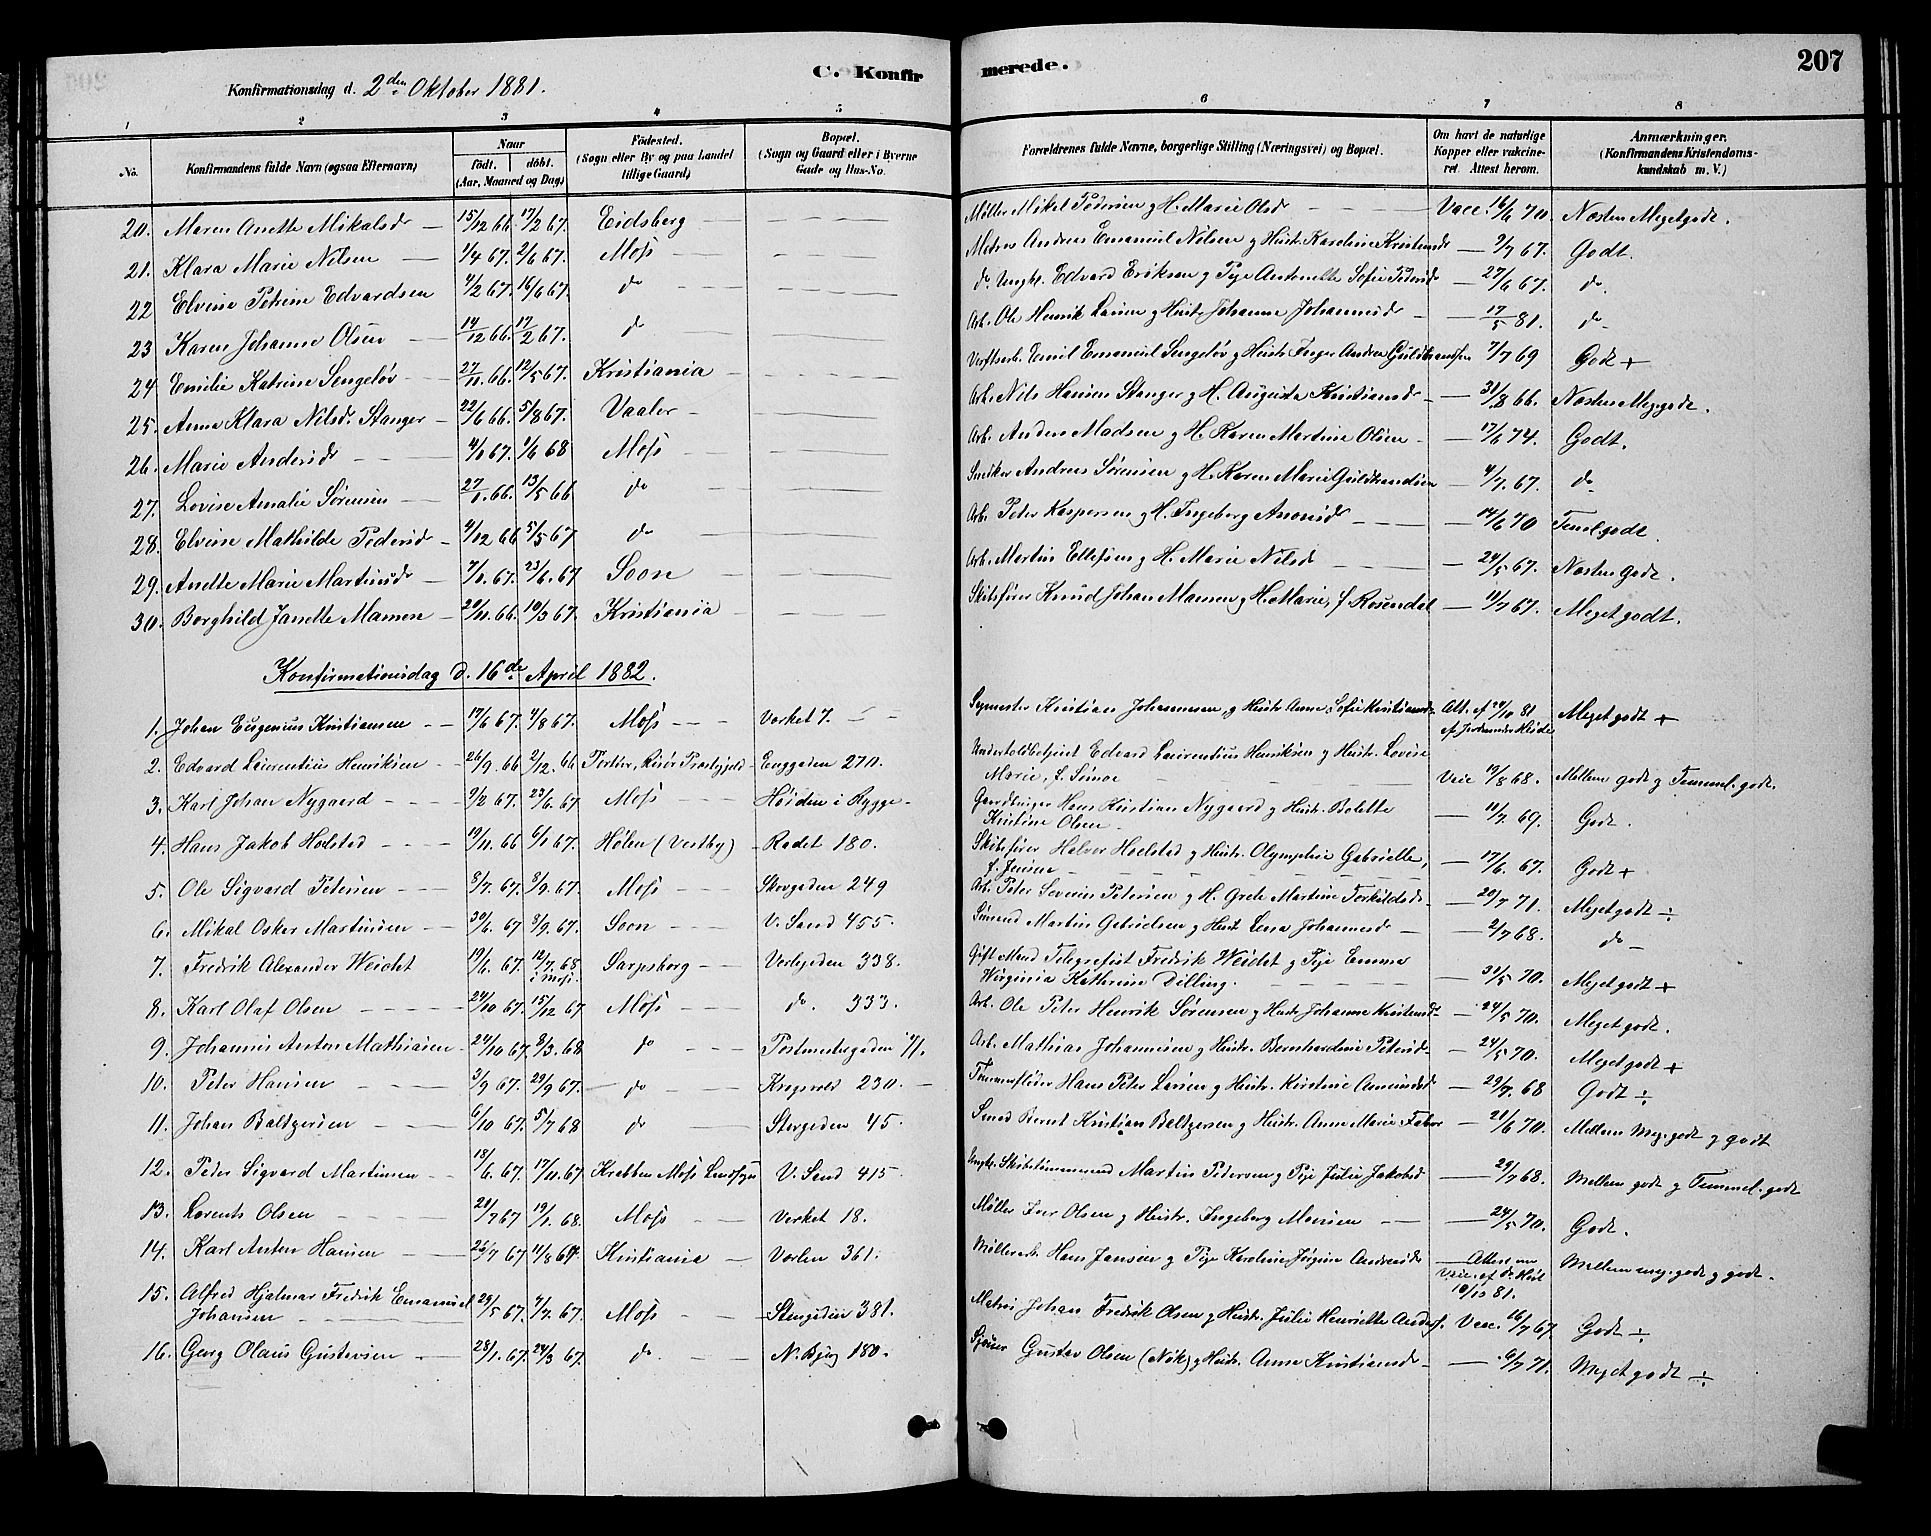 C. Konfirmerede. 207
Konfirmationsdag d. 2den Oktober 1881.
1 2 3 4 5 6 7 8
No. Konfirmandens fulde Navn (ogsaa Efternavn) Naar födt. döbt. (Aar, Maaned og Dag) Födested. (Sogn eller By og paa Landet tillige Gaard) Bopæl. (Sogn og Gaard eller i Byerne Gade og Hus-No. Forældrenes fulde Navne, borgerlige Stilling (Næringsvei) og Bopæl. Om havt de naturlige Kopper eller vakcineret. Attest herom. Anmærkninger. (Konfirmandens Kristendomskundskab m. V.)
20. Maren Anette Mikalsdr 15/12 66 17/2 67. Eidsberg Møller Mikal Pedersen g H. Marie Olsd Vacc. 16/6 70. Næsten Meget godt.
21. Klara Marie Nilsen 1/4 67. 2/6 67. Moss Matros Andreas Emanuel Nilsen g Hustr. Karoline Kristensdr 9/7 67. Godt.
22 Elvine Petrine Edvardsen 4/2 67. 16/6 67. do do. Ungk. Edvard Eriksen g Pige Antonette Sofie Pedersdr 27/6 67. do.
23 Karen Johanne Olsen 14/12 66. 17/2 67. do Arb. Ole Henrik Larsen g Hustr. Johanne Johannesdr 17/5 81. do
24 Emilie Katrine Sengeløv 27/11 66. 12/5 67. Kristiania Verftsarb. Emil Emanuel Sengeløv g Hustr. Inger Andrea Guldbrandsen 7/7 69 Godt +
25. Anna Klara Nilsd. Stanger 22/6 66. 5/8 67. Vaaler Arb. Nils Hansen Stanger g H. Augusta Kristiansdr 31/8 66. Næsten Meg. godt.
26. Marie Andersdr 4/1 67. 1/6 68 Moss Arb. Anders Madsen g H. Karen Martine Olsen 17/6 74. Godt.
27. Lovise Amalie Sørensen 27/1 66. 13/5 66 do Snedker Andreas Sørensen g H. Karen Marie Guldbrandsen 4/7. 67. do
28. Elvine Mathilde Pedersdr 4/12 66 5/5 67 do Arb. Peter Kaspersen g H. Ingeborg Amonsdr 14/6 70 Teml. godt.
29. Anette Marie Martinsdr 7/1. 67. 23/6. 67 Soon Arb. Martin Ellefsen g H. Marie Nilsd 24/5 67. Næsten Godt.
30. Borghild Janette Mamen 20/11 66. 10/3 67. Kristiania Skibsfører Knud Johan Mamen g H. Marie, f Rosendal 11/7 67. Meget godt.
Konfirmationsdag d. 16de April 1882.
1. Johan Eugenius Kristiansen 17/6 67. 4/8 67. Moss Værket 7. Sagmester Kristian Johannesen g Hustr. Anne Sofie Kristiansdr Att. af 24/10 81 Meget godt +
2. Edvard Laurentius Henriksen 26/9 66 2/12. 66 Risør Præstegjeld Enggaden 270. Undertoldbetjent Edvard Laurentius Henriksen g Hustr. Lovise
Marie, f. Simoe Vacc 19/8 68. Mellem godt g Temmel. godt.
3. Karl Johan Nygaard 9/2 67. 23/6. 67 Moss Høiden i Rygge Gaardbruger Hans Kristian Nygaard g Hustr. Bolette
Kristine Olsen 11/7. 69. Godt.
4. Hans Jakob Holstad 19/11 66 6/1 67. Hølen (Vestby) Radet 180. Skibsfører Halvor Holstad g Hustr. Olymphie Gabrielle,
f. Jensen 17/6. 67. Godt +
5. Ole Sigvard Petersen 8/7. 67. 8/9. 67. Moss Skovgaden 249 Arb. Peter Severin Petersen g H. Grete Martine Torkildsdr 20/7 71. Meget godt ÷
6. Mikal Oskar Martinsen 30/6. 67 8/9. 67. Soon V. Sand 455. Sømand Martin Gabrielsen g Hustr Lena Johannesdr 2/7 68. do
7. Fredrik Alexander Weidet 19/6. 67. 12/7. 68 i Moss. Sarpsborg Verlegaden 338. Gift Mand Telegrafist Fredrik Weidet g Pige Emma
Wirginia Kathrine Dilling. 31/5 70. Meget godt +
8. Karl Olaf Olsen 24/10 67. 15/12 67 Moss do. 333. Arb. Ole Peter Henrik Sørensen g Hustr Johanne Kristensdr 24/5 70. Meget godt.
9. Johannes Anton Mathiasen 24/10 67. 8/3. 68 do Postmestergaden 71. Arb. Mathias Johannesen g Hustr. Bernhardine Petersdr 24/5 70. Meget godt +
10. Peter Hansen 3/9 67. 29/9 67. do Krogsvold 230. Tømmerfløder Hans Peter Larsen g Hustr. Kirstine Amundsd 29/7. 68 Godt ÷
11. Johan Baltzersen 6/10 67. 5/7 68 do Storgaden 45. Smed Bernt Kristian Baltzersen g Hustr. Anne Marie Faber 20/6 70. Mellem Meg. godt g godt
12. Peder Sigvard Martinsen 18/6. 67. 17/11. 67 Krabben Moss Landsogn V. Sand 415. Ungk. Skibstømmermand Martin Pedersen g Pige Julie Jakobsd 29/7 68. Mellem godt g Temmel. godt
13. Lorents Olsen 21/7 67 19/1. 68. Moss Værket 18. Møller Iver Olsen g Hustr. Ingeborg Monsen 24/5 70. Godt.
14. Karl Anton Hansen 26/7 67 11/8 67. Kristiania Varlen 361. Møllerarb. Hans Jansen g Pige Karoline Jørgine Andreasdr Attest om Vacc. af 10/10 81. Mellem meg. godt g godt.
15. Alfred Hjalmar Fredrik Emanuel
Johansen 29/5 67. 7/7. 67. Moss Stengaden 381. Matros Johan Fredrik Olsen g Hustr. Julie Henriette Anders. Vacc. 16/7 67 Godt ÷
16. Georg Olaus Gustavsen 28/1. 67. 24/3 67. do. N. Bjerg 180. Sjauer Gustav Olsen (Nøk) g Hustr. Anne Kristiansdr 6/7 71. Meget godt ÷